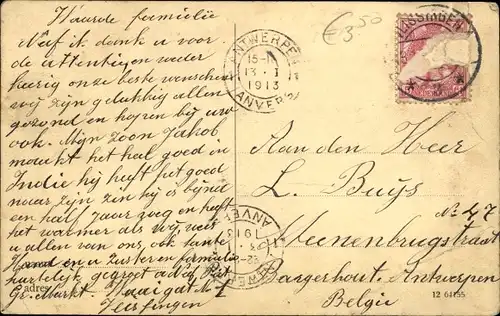 Waarde familie
Naast ik dank u voor
de attentie, en wederkeerig onze beste wenschen
wij zijn gelukkig allen
gezond en hopen bij uw
ook. Mijn Zoon Jakob
maakt het heel goed in
Indie hij heeft het goed
naar zijn zin hij is bijna
een half Jaar weg en heeft
het warmer als wij, wees
u allen van ons, ook tante
en u Zuster en familie
hartelijk gegroet
Gr. Markt.
adres
€ 3,50
ANTWERPEN
13 I
1913
ANVERS
VLISSINGEN
Aan den Heer
L. Buÿs
No 47
Meenenbrugstraat
Borgerhout. Antwerpen
Belgie
ANTWERPEN
1913
ANVERS
12 64155